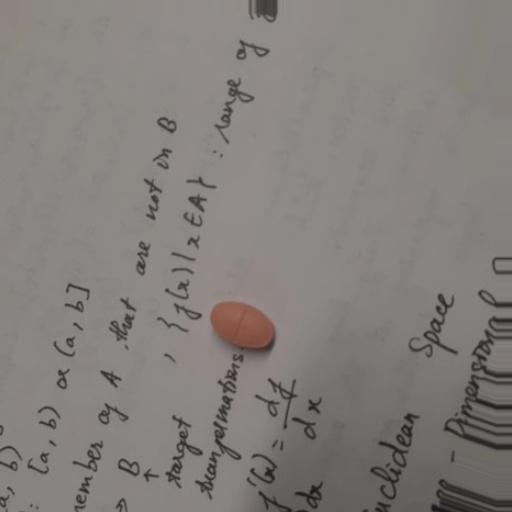 a, b)
: [a, b) or (a, b]
member of A that are not in B
⇒ B
↑
target , { f(x) | x ∈ A } : range of
transformations
f'(x) = df/dx
dx
uclidean Space
- Dimensional